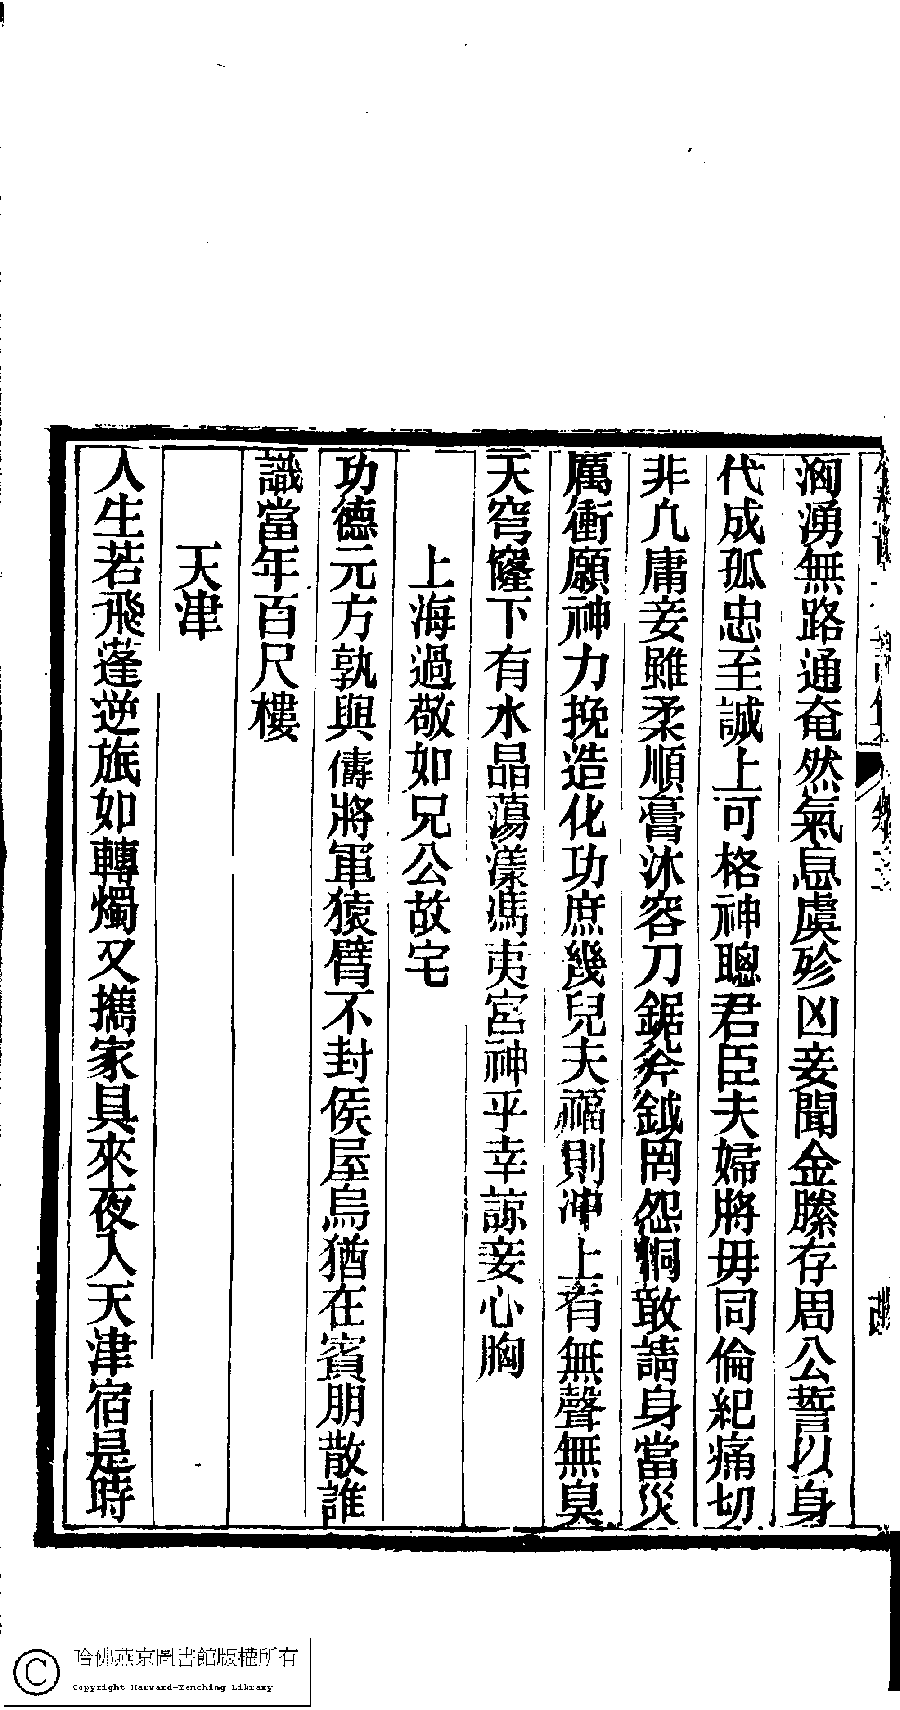 洶湧無路通奄然氣息虞殄凶妾聞金縢存周公誓以身
代成孤忠至誠上可格神聰君臣夫婦將毋同倫紀痛切
非凡庸妾雖柔順膏沐容刀鋸斧鉞罔怨恫敢請身當災
厲衝願神力挽造化功庶幾兒夫福則沖上有無聲無臭
天穹窿下有水晶蕩漾馮夷宮神乎幸諒妾心胸
上海過敬如兄公故宅
功德元方孰與儔將軍猿臂不封侯屋烏猶在賓朋散誰
識當年百尺樓
天津
人生若飛蓬逆旅如轉燭又攜家具來夜入天津宿是時
哈佛燕京圖書館版權所有
Copyright Harvard-Yenching Library